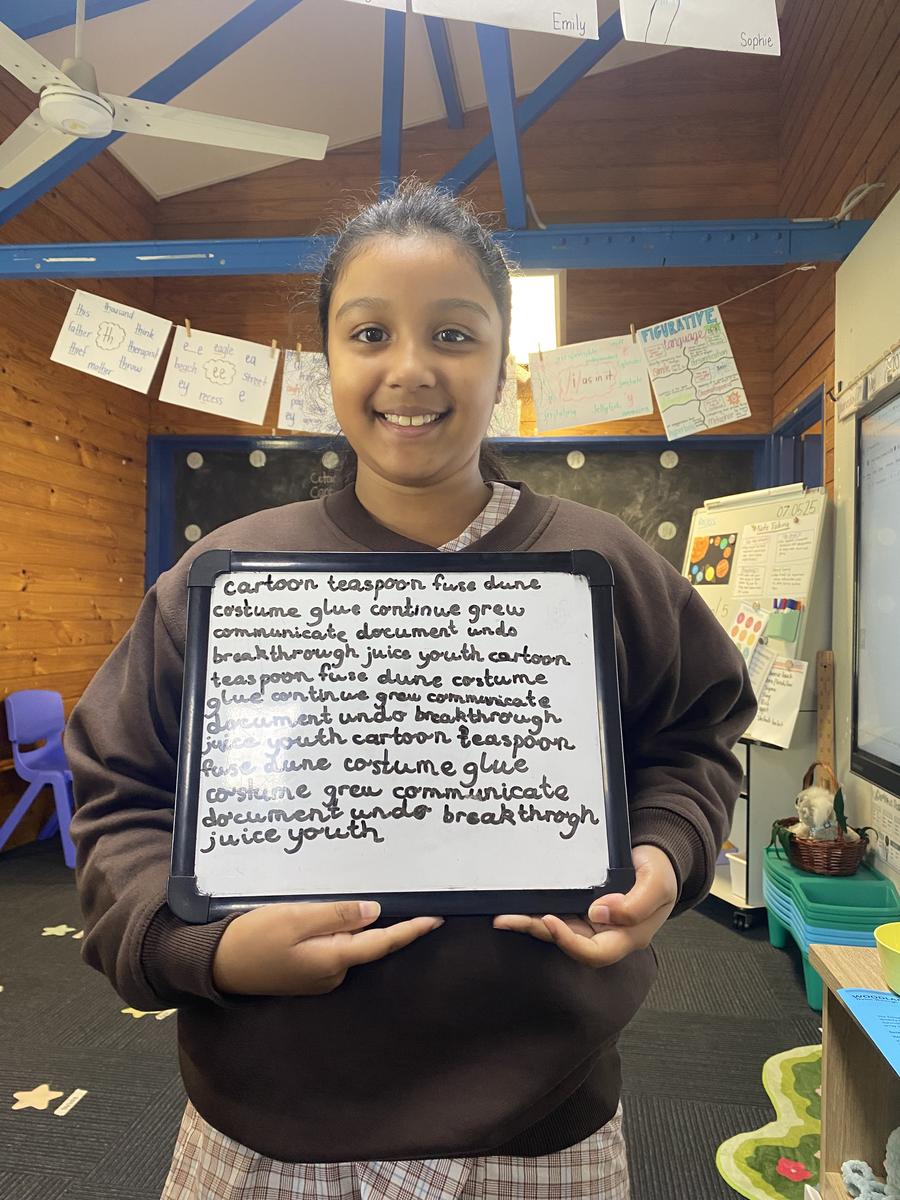 Emily
Sophie
this thousand
father th think
thief therapist
mother throw
e_e eagle ea
beach ee street
ey recess e
/i/ as in it
jellyfish y
FIGURATIVE
language
07.05.25
Note Taking
cartoon teaspoon fuse dune
costume glue continue grew
communicate document undo
breakthrough juice youth cartoon
teaspoon fuse dune costume
glue continue grew communicate
document undo breakthrough
juice youth cartoon teaspoon
fuse dune costume glue
costume grew communicate
document undo breakthrogh
juice youth